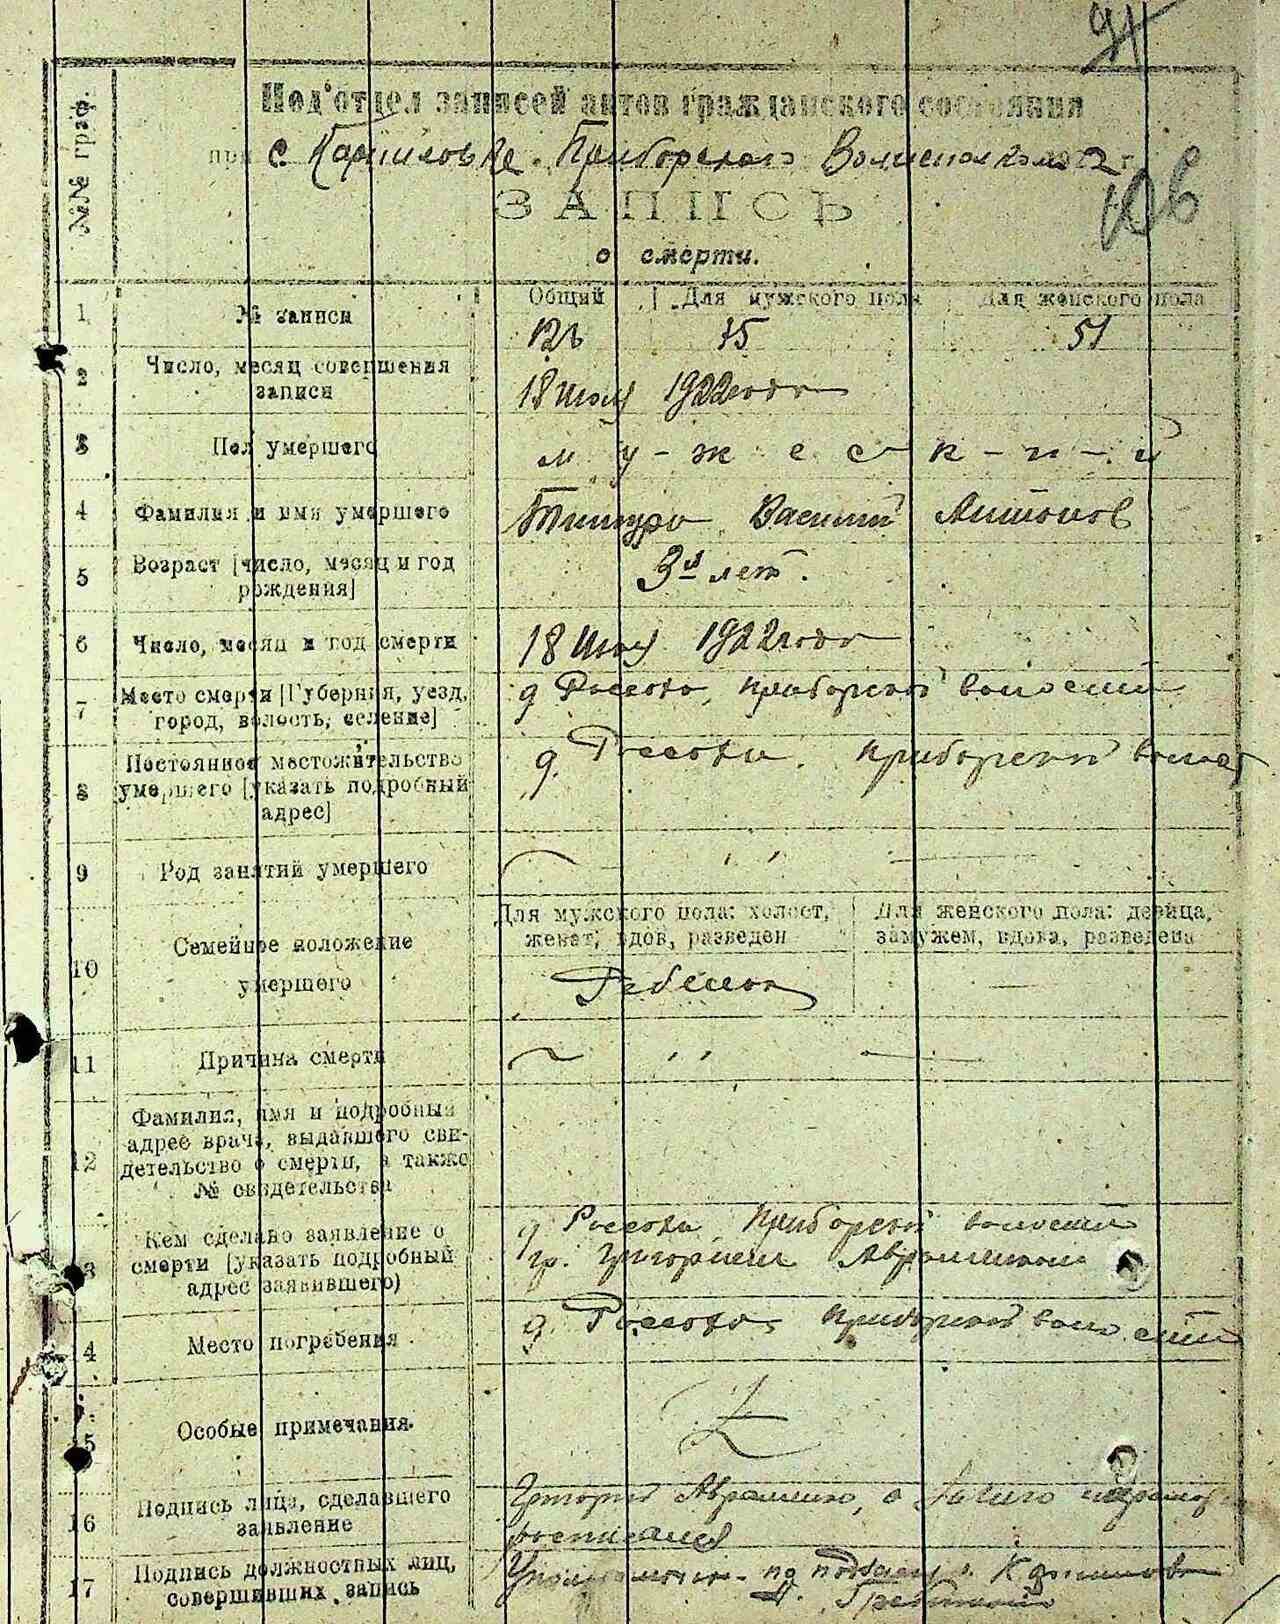 91
№№ граф.
Под'отдел записей актов гражданского состояния
при с. Карпиловке. Приборского Волисполкома 1922 г.
106
ЗАПИСЬ
о смерти.
1 № записи Общий Для мужского пола Для женского пола
126 75 51
2 Число, месяц совершения
записи
18 июля 1922 года
3 Пол умершего м у-ж е с к-и-й
4 Фамилия и имя умершего Василий Антонов
5 Возраст [число, месяц и год
рождения]
3х лет.
6 Число, месяц и год смерти 18 июля 1922 года
7 Место смерти [Губерния, уезд,
город, волость, селение]
д Россоха, Приборской волости
8 Постоянное местожительство
умершего [указать подробный
адрес]
д. Россоха. Приборской волост
9 Род занятий умершего
10 Семейное положение
умершего
Для мужского пола: холост,
женат, вдов, разведен
Для женского пола: девица,
замужем, вдова, разведена
Ребенок
11 Причина смерти
12 Фамилия, имя и подробный
адрес врача, выдавшего сви-
детельство о смерти, а также
№ свидетельства
13 Кем сделано заявление о
смерти (указать подробный
адрес заявившего)
д Россохи Приборской волости
гр. Григорием Авраменком
14 Место погребения д. Россоха Приборской волости
15 Особые примечания.
16 Подпись лица, сделавшего
заявление
Григорий Авраменко, а
росписался
17 Подпись должностных лиц,
совершивших запись
по